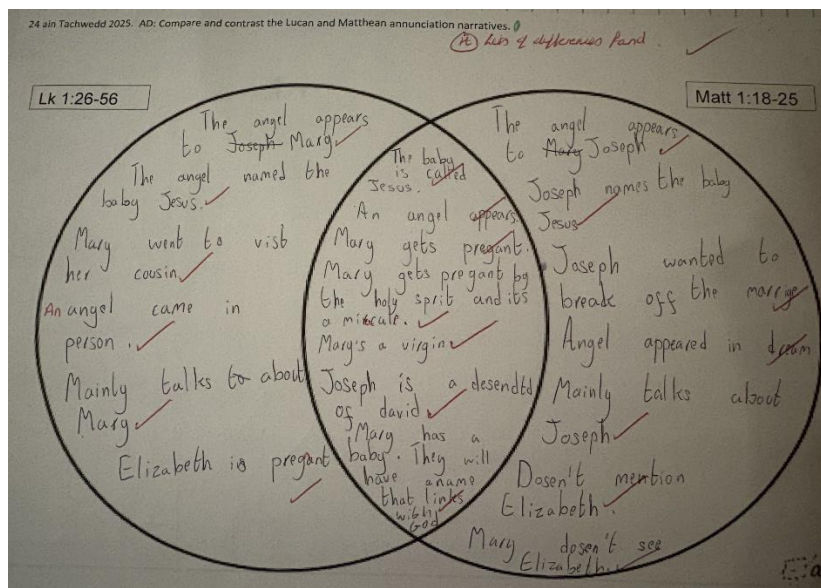 24 ain Tachwedd 2025. AD: Compare and contrast the Lucan and Matthean annunciation narratives.
Lots of differences found.
Lk 1:26-56
The angel appears
to Joseph Mary
The angel named the
baby Jesus.
Mary went to visit
her cousin
An angel came in
person.
Mainly talks to about
Mary
Elizabeth is pregant
The baby
is called
Jesus.
An angel appears.
Mary gets pregant.
Mary gets pregant by
the holy sprit and its
a miracule.
Mary's a virgin
Joseph is a desendtd
of david
Mary has a
baby. They will
have a name
that links
with
God
Matt 1:18-25
The angel appears
to Mary Joseph
Joseph names the baby
Jesus
Joseph wanted to
break off the marrige
Angel appeared in dream
Mainly talks about
Joseph
Dosen't mention
Elizabeth.
Mary dosen't see
Elizabeth.